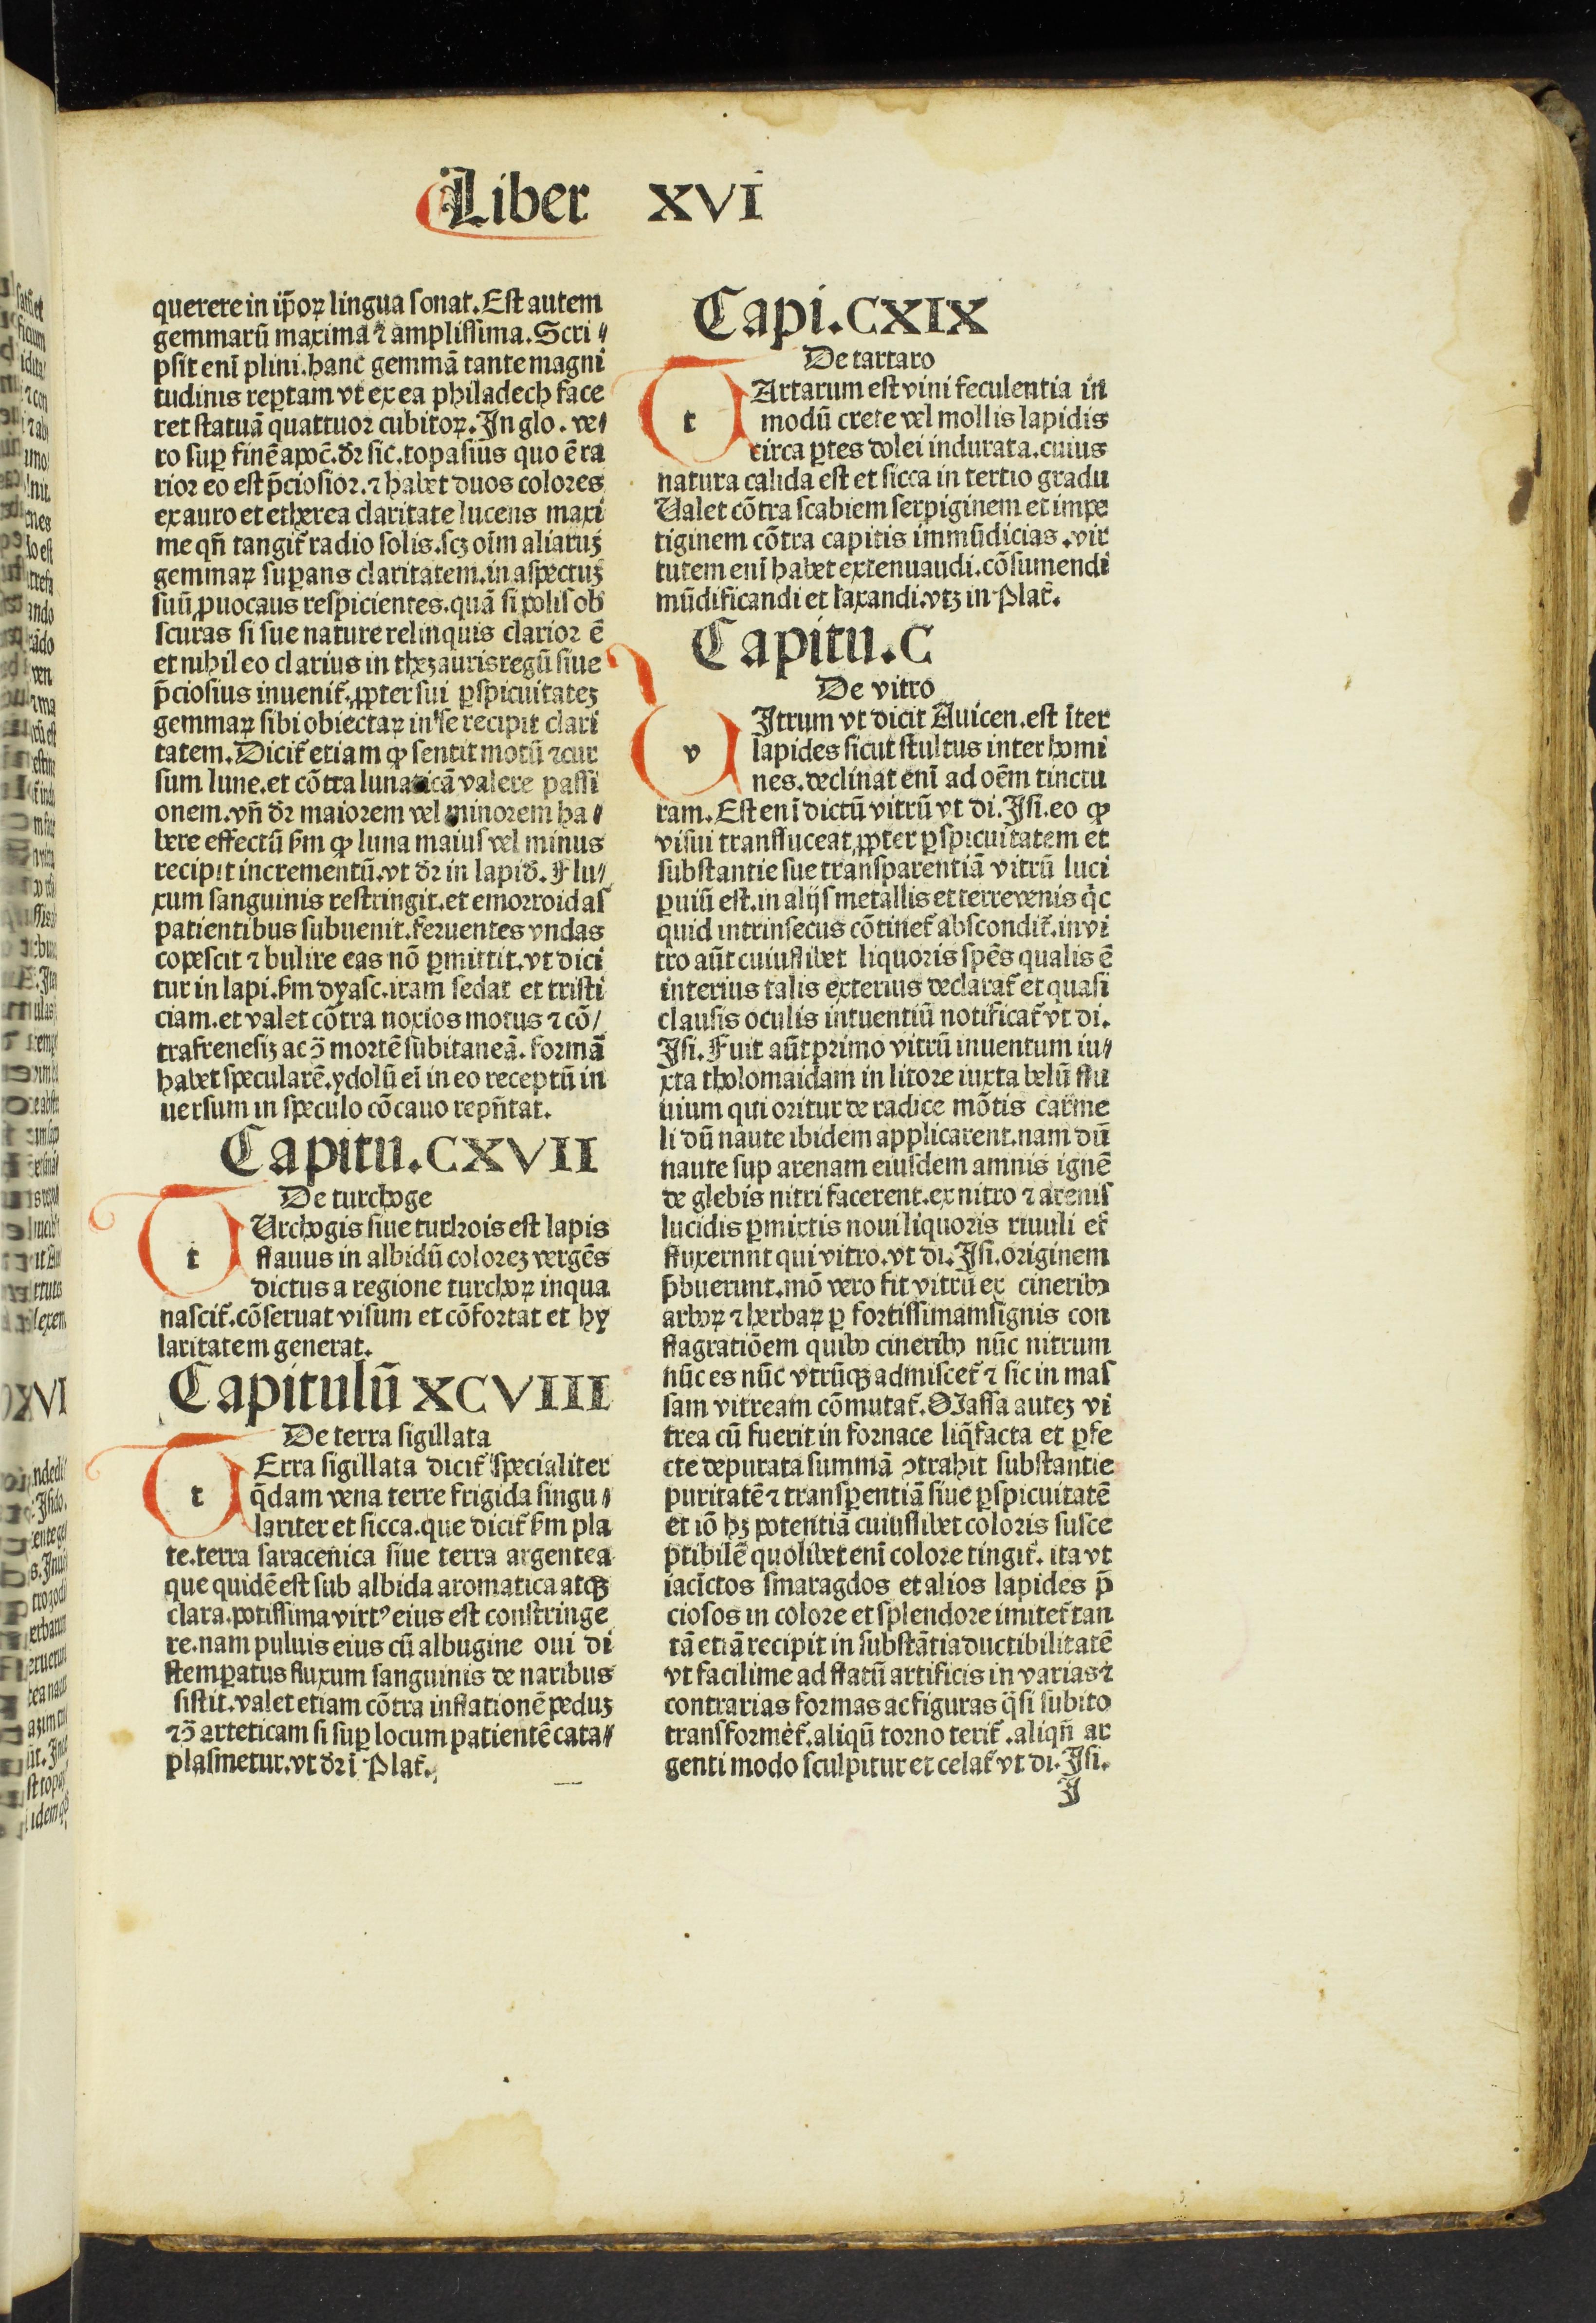 Liber XVI
querere in ip̄oꝝ lingua ſonat. Eſt autem
gemmarū maxima ⁊ ampliſſima. Scri⸗
pſit enī plini. hanc gemmā tante magni
tudinis reꝑtam vt ex ea philadech face
ret ſtatuā quattuor cubitoꝝ. In glo. ve⸗
ro ſuꝑ finē apoc̄. dr̄ ſic. topaſius quo ē ra
rior eo eſt p̄cioſior. ⁊ habet duos colores
ex auro et etherea claritate lucens maxi
me qn̄ tangit᷑ radio ſolis. ſcꝫ oīm aliaruꝫ
gemmaꝝ ſuꝑans claritatem. in aſpectuꝫ
ſuū ꝓuocaus reſpicientes. quā ſi poliſ ob
ſcuras ſi ſue nature relinquis clarior ē
et nihil eo clarius in theꝫauris regū ſiue
p̄cioſius inuenit᷑. ꝓpter ſui ꝑſpicuitateꝫ
gemmaꝝ ſibi obiectaꝝ in ſe recipit clari
tatem. Dicit᷑ etiam ꝙ ſentit motū ⁊ cur
ſum lune. et cōtra lunaticā valere paſſi
onem. vn̄ dr̄ maiorem vel minorem ha⸗
bere effectū ẜm ꝙ luna maiuſ vel minus
recipit incrementū. vt dr̄ in lapid̄. Flu⸗
xum ſanguinis reſtringit. et emorroidaſ
patientibus ſubuenit. feruentes vndas
copeſcit ⁊ bulire eas nō ꝑmittit. vt dici
tur in lapi. ẜm dyaſc. iram ſedat et triſti
ciam. et valet cōtra noxios motus ⁊ cō/
tra freneſiꝫ ac ↄ̄ mortē ſubitaneā. formā
habet ſpecularē. ydolū ei in eo receptū in
uerſum in ſpeculo cōcauo repn̄tat.
Capitu. CXVII
De turchoge
t
Urchogis ſiue turkois eſt lapis
flauus in albidū coloreꝫ vergēs
dictus a regione turchoꝝ in qua
naſcit᷑. cōſeruat viſum et cōfortat et hy
laritatem generat.
Capitulū XCVIII
De terra ſigillata
t
Erra ſigillata dicit᷑ ſpecialiter
q̄dam vena terre frigida ſingu⸗
lariter et ſicca. que dicit᷑ ẜm pla
te. terra ſaracenica ſiue terra argentea
que quidē eſt ſub albida aromatica atqꝫ
clara. potiſſima virt⁹ eius eſt conſtringe
re. nam puluis eius cū albugine oui di
ſtemꝑatus fluxum ſanguinis de naribus
ſiſtit. valet etiam cōtra inflationē peduꝫ
⁊ ↄ̄ arteticam ſi ſuꝑ locum patientē cata⸗
plaſmetur. vt dr̄ ī Plat᷑.
Capi. CXIX
De tartaro
t
Artarum eſt vini feculentia in
modū crete vel mollis lapidis
circa ꝑtes dolei indurata. cuius
natura calida eſt et ſicca in tertio gradu
Ualet cōtra ſcabiem ſerpiginem et impe
tiginem cōtra capitis immūdicias. vir
tutem enī habet extenuaudi. cōſumendi
mūdificandi et laxandi. vtꝫ in Plat᷑.
Capitu. C
De vitro
v
Itrum vt dicit Auicen. eſt īter
lapides ſicut ſtultus inter homi
nes. declinat enī ad oēm tinctu
ram. Eſt enī dictū vitrū vt di. Iſi. eo ꝙ
viſui tranſluceat ꝓpter ꝑſpicuitatem et
ſubſtantie ſue tranſparentiā vitrū luci
ꝑuiū eſt. in alijſ metallis et terre venis q̇c
quid intrinſecus cōtinet᷑ abſcondit᷑. in vi
tro aūt cuiuſlibet liquoris ſpēs qualis ē
interius talis exterius declarat᷑ et quaſi
clauſis oculis intuentiū notificat᷑ vt di.
Iſi. Fuit aūt primo vitrū inuentum iu⸗
xta tholomaidam in litore iuxta belū flu
uium qui oritur de radice mōtis carme
li dū naute ibidem applicarent. nam dū
naute ſup arenam eiuſdem amnis ignē
de glebis nitri facerent. ex nitro ⁊ areniſ
lucidis ꝑmixtis noui liquoris riuuli ef᷑
fluxernnt qui vitro. vt di. Iſi. originem
p̄buerunt. mō vero fit vitrū ex cineribꝰ
arboꝝ ⁊ herbaꝝ ꝑ fortiſſimamſignis con
flagratiōem quibꝰ cineribꝰ nūc nitrum
nūc es nūc vtrūqꝫ admiſcet᷑ ⁊ ſic in maſ
ſam vitream cōmutat᷑. Maſſa auteꝫ vi
trea cū fuerit in fornace liq̄facta et ꝑfe
cte depurata ſummā ↄtrahit ſubſtantie
puritatē ⁊ tranſꝑentiā ſiue ꝑſpicuitatē
et iō hꝫ potentiā cuiuſlibet coloris ſuſce
ptibilē quolibet enī colore tingit᷑. ita vt
iacīctos ſmaragdos et alios lapides p̄
cioſos in colore et ſplendore imitet᷑ tan
tā etiā recipit in ſubſtātia ductibilitatē
vt facilime ad flatū artificis in varias ⁊
contrarias formas ac figuras q̄ſi ſubito
tranſformet᷑. aliqū torno terit᷑. aliqn̄ ar
genti modo ſculpitur et celat᷑ vt di. Iſi.
I